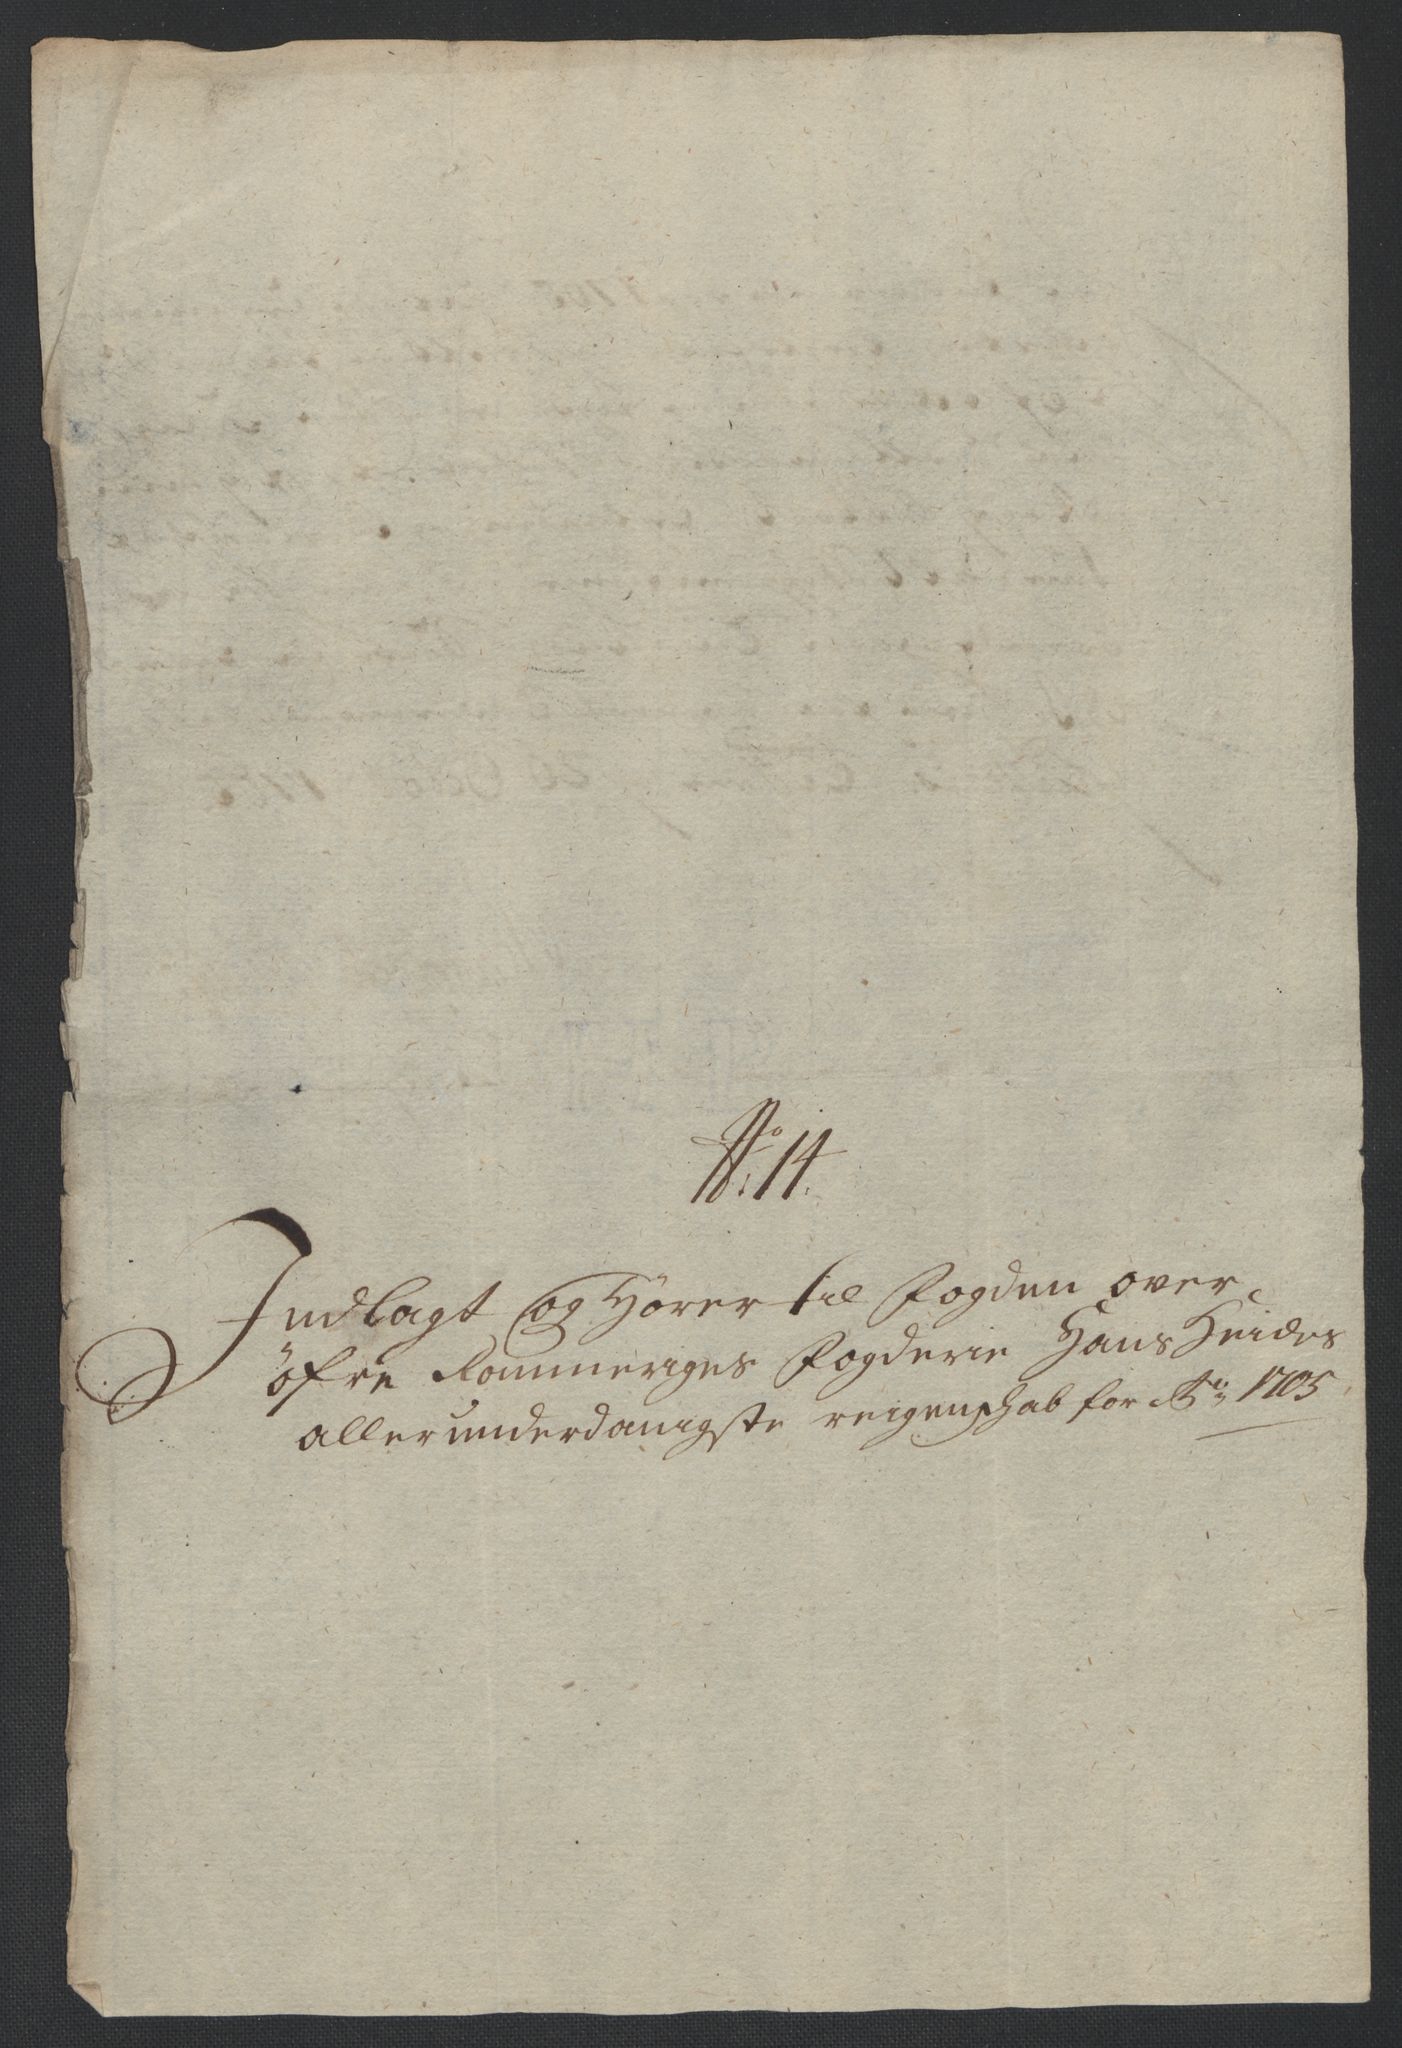 No 14.
Indlagt og Hörer til Fogden over
öfre Rommeriges Fogderie Hans Heides
allerunderdanigste reigenschab for Ao: 1705